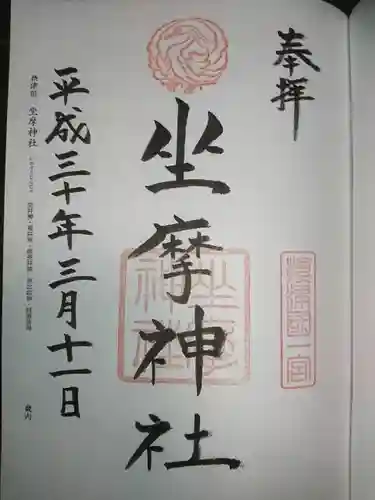 奉拝
坐摩神社
坐摩
神社
一宮
平成三十年三月十一日
摂津国 坐摩神社
畿内